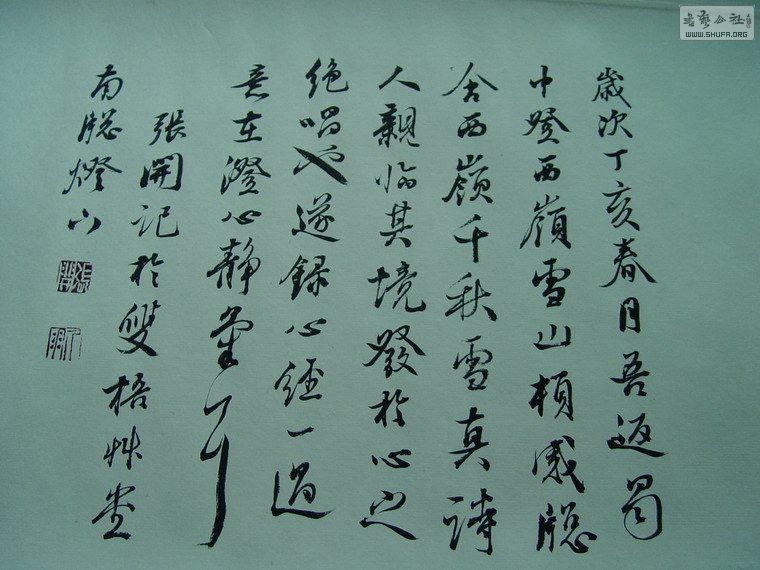 書藝公社
WWW.SHUFA.ORG
歲次丁亥春月吾返蜀
中登西嶺雪山頓感牕
含西嶺千秋雪真詩
人親臨其境發於心之
绝唱也遂録心經一過
意在澄心静氣耳
張開記於雙梧艸堂
南牕燈下